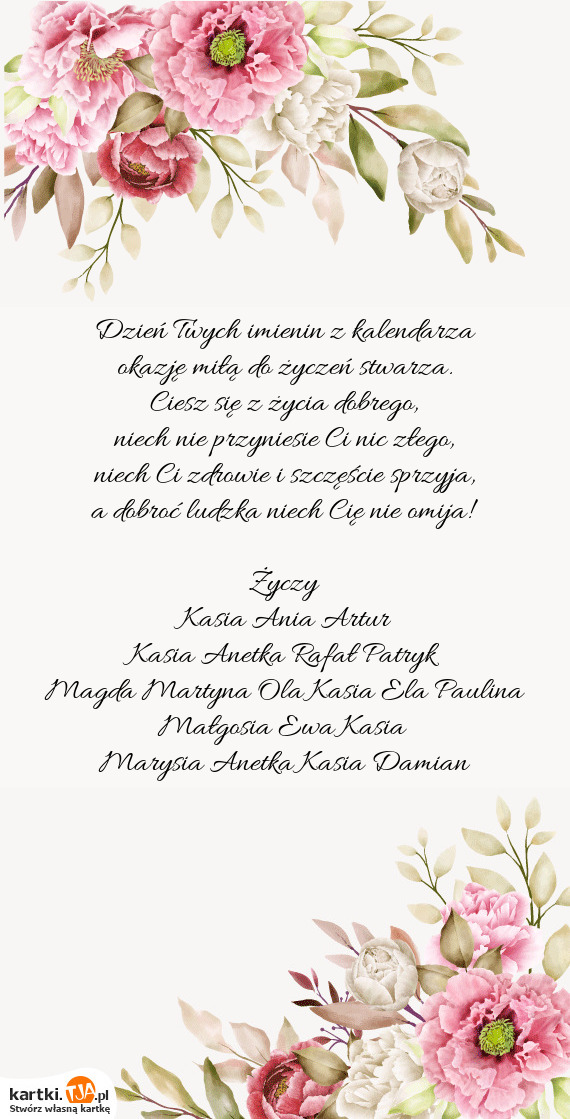 Dzień Twych imienin z kalendarza
okazję miłą do życzeń stwarza.
Ciesz się z życia dobrego,
niech nie przyniesie Ci nic złego,
niech Ci zdrowie i szczęście sprzyja,
a dobroć ludzka niech Cię nie omija!
Życzy
Kasia Ania Artur
Kasia Anetka Rafał Patryk
Magda Martyna Ola Kasia Ela Paulina
Małgosia Ewa Kasia
Marysia Anetka Kasia Damian
kartki.TJA.pl
Stwórz własną kartkę